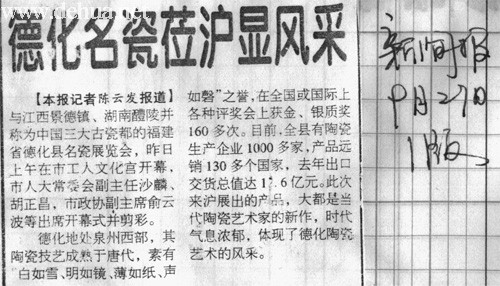 www.dehua.net
德化名瓷莅沪显风采
【本报记者陈云发报道】
与江西景德镇、湖南醴陵并
称为中国三大古瓷都的福建
省德化县名瓷展览会，昨日
上午在市工人文化宫开幕，
市人大常委会副主任沙麟、
胡正昌，市政协副主席俞云
波等出席开幕式并剪彩。
德化地处泉州西部，其
陶瓷技艺成熟于唐代，素有
“白如雪、明如镜、薄如纸、声
如磬”之誉，在全国或国际上
各种评奖会上获金、银质奖
160多次。目前，全县有陶瓷
生产企业1000多家，产品远
销130多个国家，去年出口
交货总值达1.6亿元。此次
来沪展出的产品，大都是当
代陶瓷艺术家的新作，时代
气息浓郁，体现了德化陶瓷
艺术的风采。
新闻报
9月29日